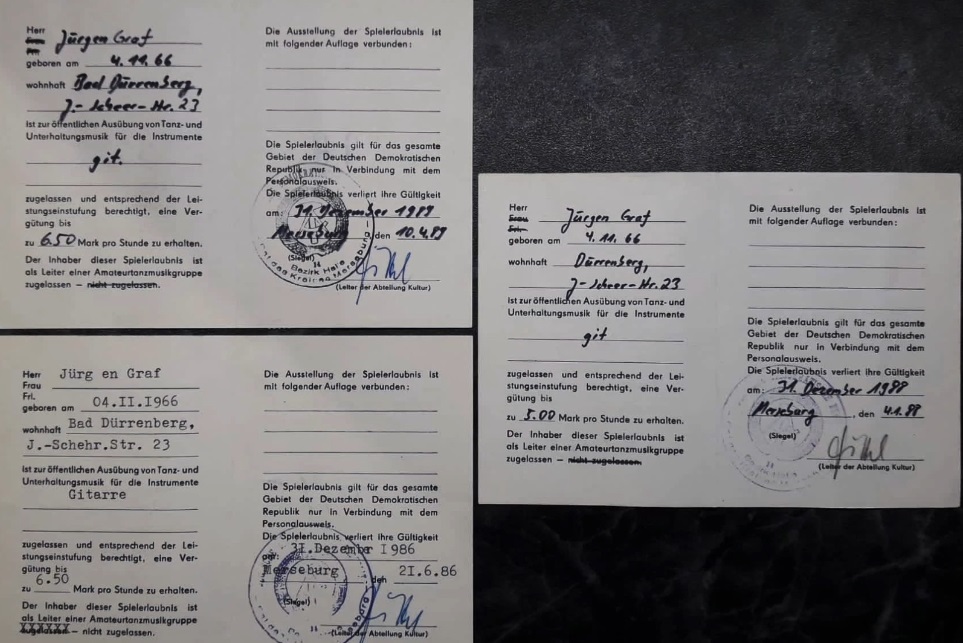 Herr Jürgen Graf
Frau
Frl.
geboren am 4.11.66
wohnhaft Bad Dürrenberg,
J.-Scheer-Str. 23
ist zur öffentlichen Ausübung von Tanz- und
Unterhaltungsmusik für die Instrumente
git.
zugelassen und entsprechend der Lei-
stungseinstufung berechtigt, eine Ver-
gütung bis
zu 6.50 Mark pro Stunde zu erhalten.
Der Inhaber dieser Spielerlaubnis ist
als Leiter einer Amateurtanzmusikgruppe
zugelassen — nicht zugelassen.
Die Ausstellung der Spielerlaubnis ist
mit folgender Auflage verbunden:
Die Spielerlaubnis gilt für das gesamte
Gebiet der Deutschen Demokratischen
Republik nur in Verbindung mit dem
Personalausweis.
Die Spielerlaubnis verliert ihre Gültigkeit
am: 31. Dezember 1989
Merseburg, den 10.4.89
(Siegel)
14
Bezirk Halle
(Leiter der Abteilung Kultur)
Herr Jürg en Graf
Frau
Frl.
geboren am 04.II.I966
wohnhaft Bad Dürrenberg,
J.-Schehr.Str. 23
ist zur öffentlichen Ausübung von Tanz- und
Unterhaltungsmusik für die Instrumente
Gitarre
zugelassen und entsprechend der Lei-
stungseinstufung berechtigt, eine Ver-
gütung bis
6.50
zu Mark pro Stunde zu erhalten.
Der Inhaber dieser Spielerlaubnis ist
als Leiter einer Amateurtanzmusikgruppe
zugelassen — nicht zugelassen.
Die Ausstellung der Spielerlaubnis ist
mit folgender Auflage verbunden:
Die Spielerlaubnis gilt für das gesamte
Gebiet der Deutschen Demokratischen
Republik nur in Verbindung mit dem
Personalausweis.
Die Spielerlaubnis verliert ihre Gültigkeit
am: 3I.Dezember I986
Merseburg den 2I.6.86
(Siegel)
(Leiter der Abteilung Kultur)
Herr Jürgen Graf
Frau
Frl.
geboren am 4.11.66
wohnhaft Dürrenberg,
J-Scheer-Str.23
ist zur öffentlichen Ausübung von Tanz- und
Unterhaltungsmusik für die Instrumente
git
zugelassen und entsprechend der Lei-
stungseinstufung berechtigt, eine Ver-
gütung bis
zu 5.00 Mark pro Stunde zu erhalten.
Der Inhaber dieser Spielerlaubnis ist
als Leiter einer Amateurtanzmusikgruppe
zugelassen — nicht zugelassen.
Die Ausstellung der Spielerlaubnis ist
mit folgender Auflage verbunden:
Die Spielerlaubnis gilt für das gesamte
Gebiet der Deutschen Demokratischen
Republik nur in Verbindung mit dem
Personalausweis.
Die Spielerlaubnis verliert ihre Gültigkeit
am: 31. Dezember 1988
Merseburg, den 4.1.88
(Siegel)
(Leiter der Abteilung Kultur)